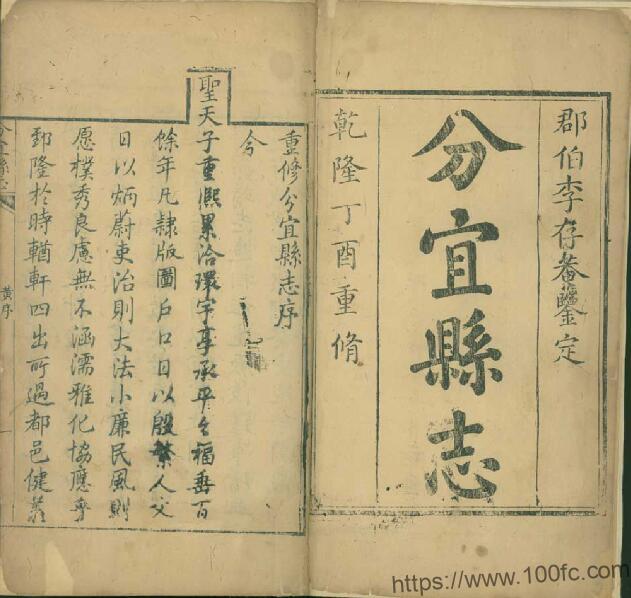 郡伯李存菴鑒定
分宜縣志
乾隆丁酉重脩
重修分宜縣志序
今
聖天子重熈累洽環宇享承平之福垂百
餘年凡隷版圖戶口日以殷繁人文
日以炳蔚吏治則大法小廉民風則
愿樸秀良慮無不涵濡雅化協應
郅隆於時輶軒四出所過都邑健
黃序
https://www.100fc.com